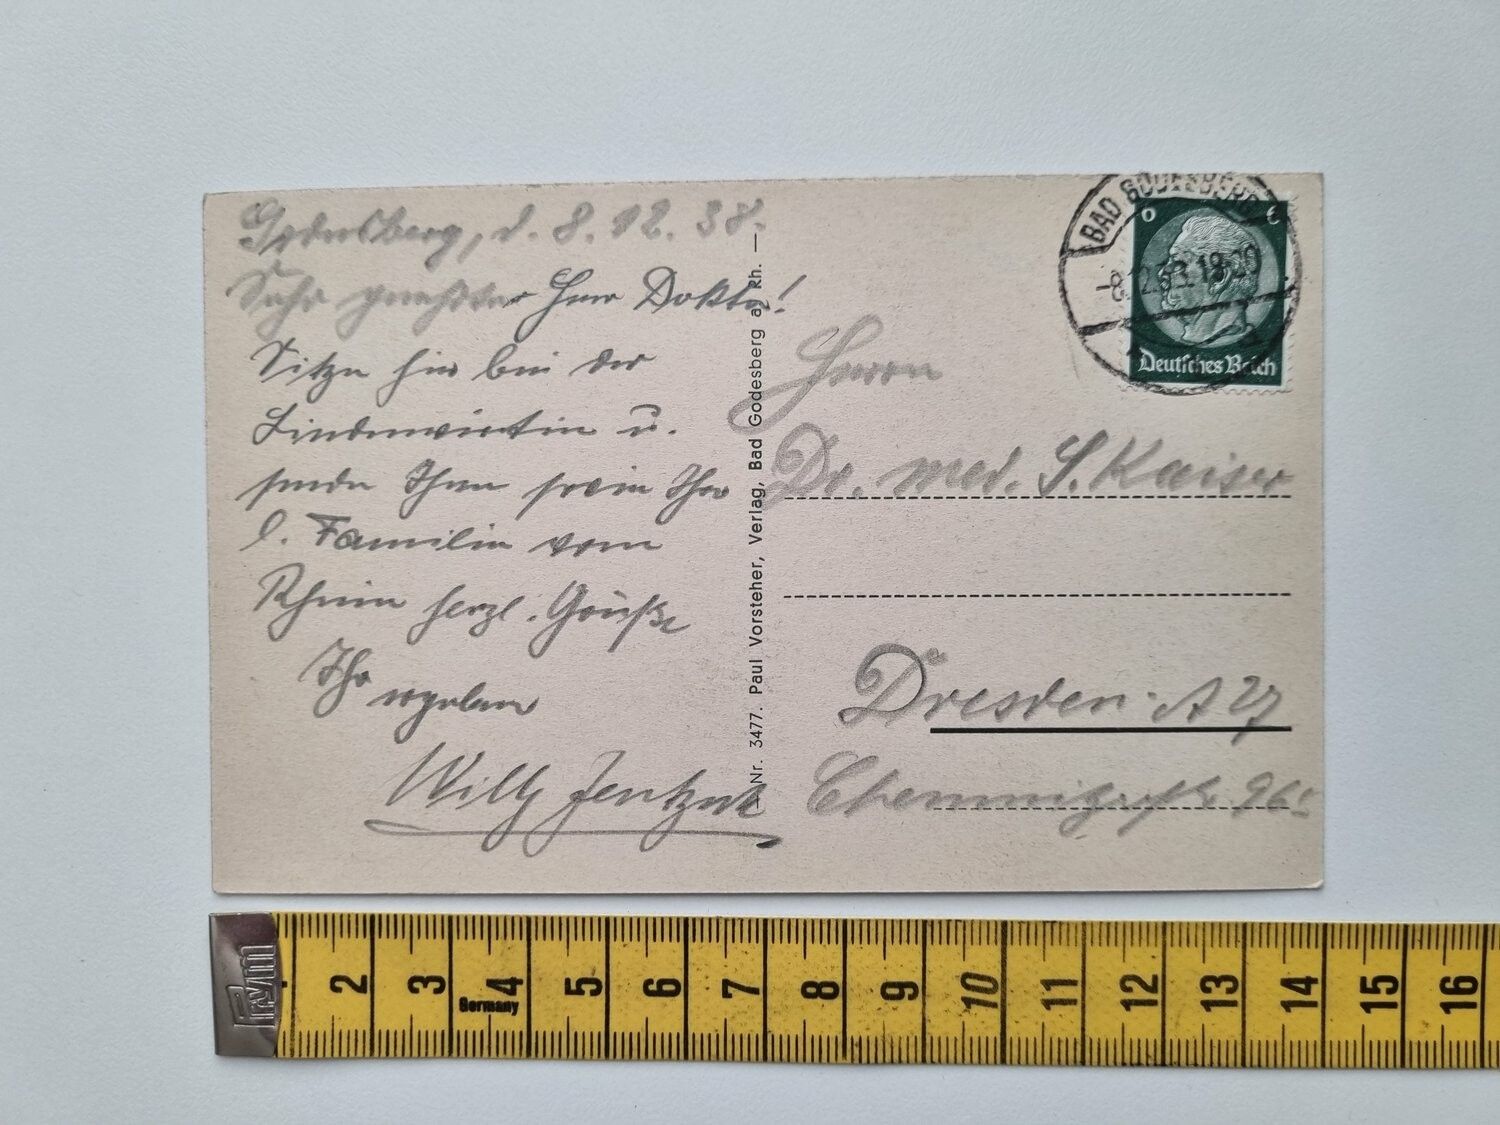 Godesberg, d. 8.12.38.
Sehr geehrter Herr Doktor!
Sitze hier bei der
Lindenwirtin u.
sende Ihnen sowie Ihrer
l. Familie vom
Rhein herzl. Grüße
Ihr ergebener
Willy
Nr. 3477. Paul Vorsteher, Verlag, Bad Godesberg a. Rh.
BAD GODESBERG
Deutsches Reich
Herrn
Dr. med. S. Kaiser
Dresden-A 27
Chemnitzerstr. 96
Prym
2 3 4 5 6 7 8 9 10 11 12 13 14 15 16
Germany